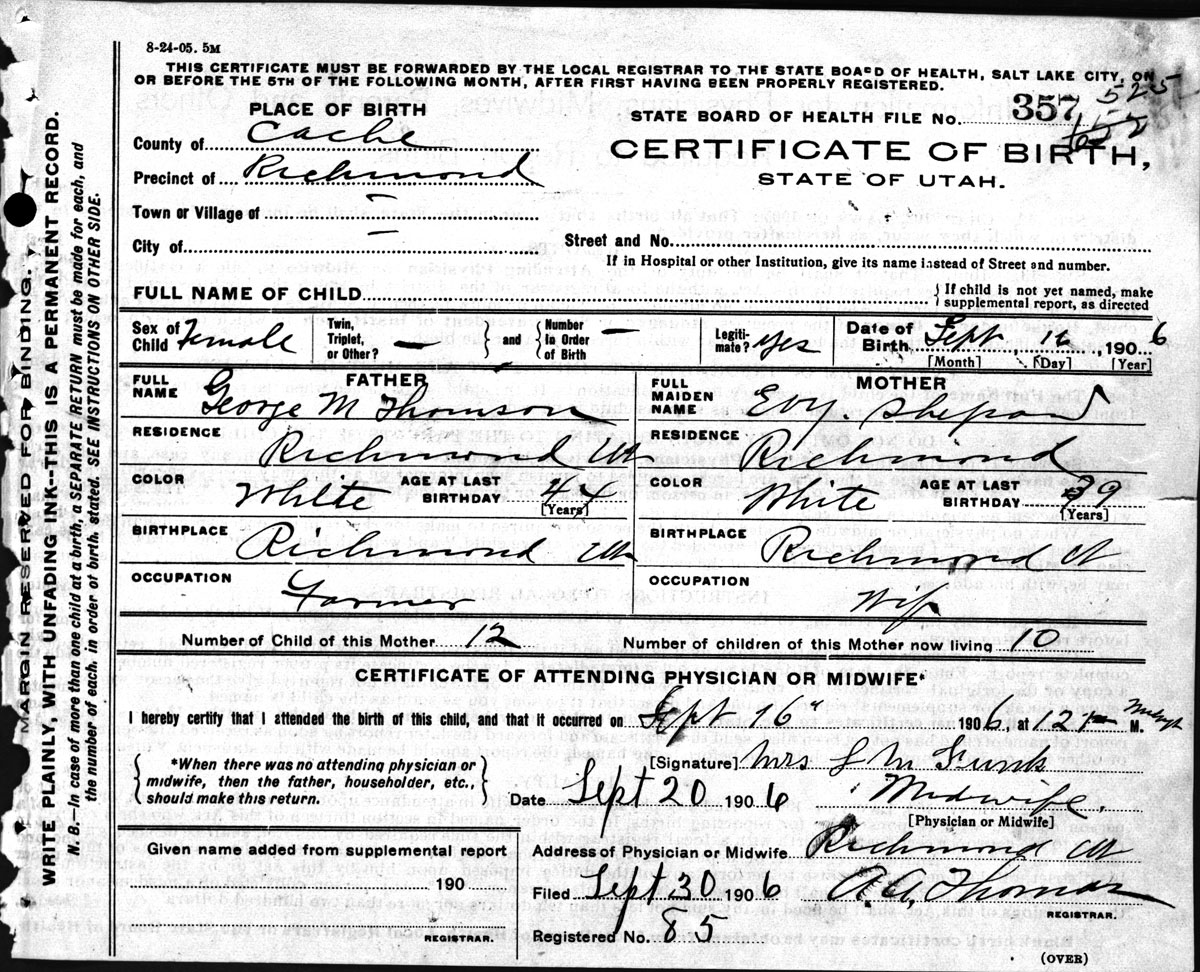 8-24-05. 5M
THIS CERTIFICATE MUST BE FORWARDED BY THE LOCAL REGISTRAR TO THE STATE BOARD OF HEALTH, SALT LAKE CITY, ON
OR BEFORE THE 5TH OF THE FOLLOWING MONTH, AFTER FIRST HAVING BEEN PROPERLY REGISTERED.
525
PLACE OF BIRTH
STATE BOARD OF HEALTH FILE No. 357
County of Cache
CERTIFICATE OF BIRTH,
Precinct of Richmond
STATE OF UTAH.
Town or Village of
City of
Street and No.
If in Hospital or other Institution, give its name instead of Street and number.
FULL NAME OF CHILD
If child is not yet named, make
supplemental report, as directed
Sex of Child Female
Twin, Triplet, or Other? —
and
Number In Order of Birth —
Legiti-mate? yes
Date of Birth Sept. 16, 1906
[Month] [Day] [Year]
FATHER
FULL NAME George M Thomson
RESIDENCE Richmond Ut
COLOR White AGE AT LAST BIRTHDAY 44
[Years]
BIRTHPLACE Richmond Ut
OCCUPATION Farmer
MOTHER
FULL MAIDEN NAME
RESIDENCE Richmond
COLOR White AGE AT LAST BIRTHDAY 39
[Years]
BIRTHPLACE Richmond Ut
OCCUPATION Wife
Number of Child of this Mother 12
Number of children of this Mother now living 10
CERTIFICATE OF ATTENDING PHYSICIAN OR MIDWIFE*
I hereby certify that I attended the birth of this child, and that it occurred on Sept 16th 1906, at 12 M.
*When there was no attending physician or
midwife, then the father, householder, etc.,
should make this return.
[Signature] Mrs S M Funk
Date Sept 20 1906 Midwife.
[Physician or Midwife]
Given name added from supplemental report
190
REGISTRAR.
Address of Physician or Midwife Richmond Ut
Filed Sept 30 1906
Thomas
REGISTRAR.
Registered No. 85
(OVER)
MARGIN RESERVED FOR BINDING
WRITE PLAINLY, WITH UNFADING INK--THIS IS A PERMANENT RECORD.
N. B.—In case of more than one child at a birth, a SEPARATE RETURN must be made for each, and
the number of each, in order of birth, stated. SEE INSTRUCTIONS ON OTHER SIDE.